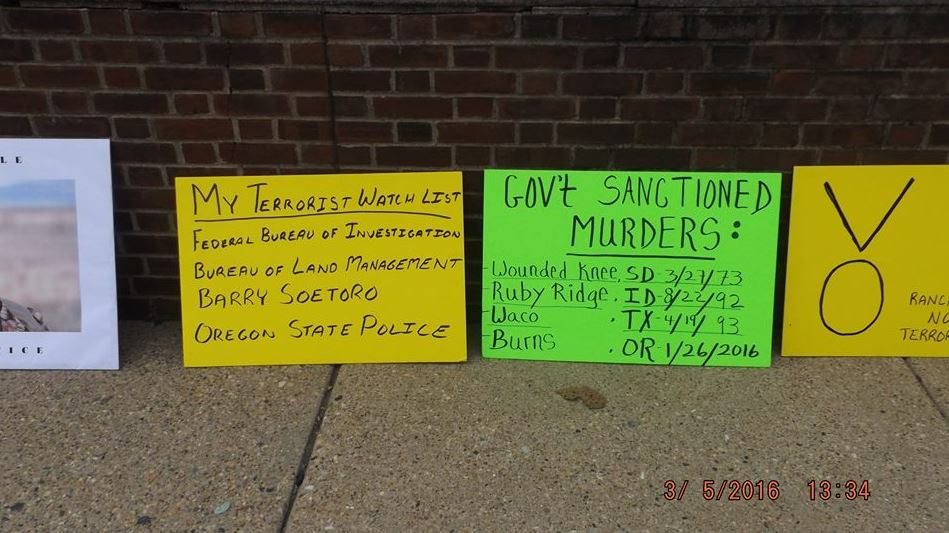 L E
I C E
MY TERRORIST WATCH LIST
FEDERAL BUREAU OF INVESTIGATION
BUREAU OF LAND MANAGEMENT
BARRY SOETORO
OREGON STATE POLICE
GOV't SANCTIONED
MURDERS:
-Wounded Knee, SD-3/27/73
-Ruby Ridge. ID-8/22/92
-Waco . TX-4/19/93
-Burns . OR-1/26/2016
V
O
RANC
NO
TERROR
3/ 5/2016 13:34